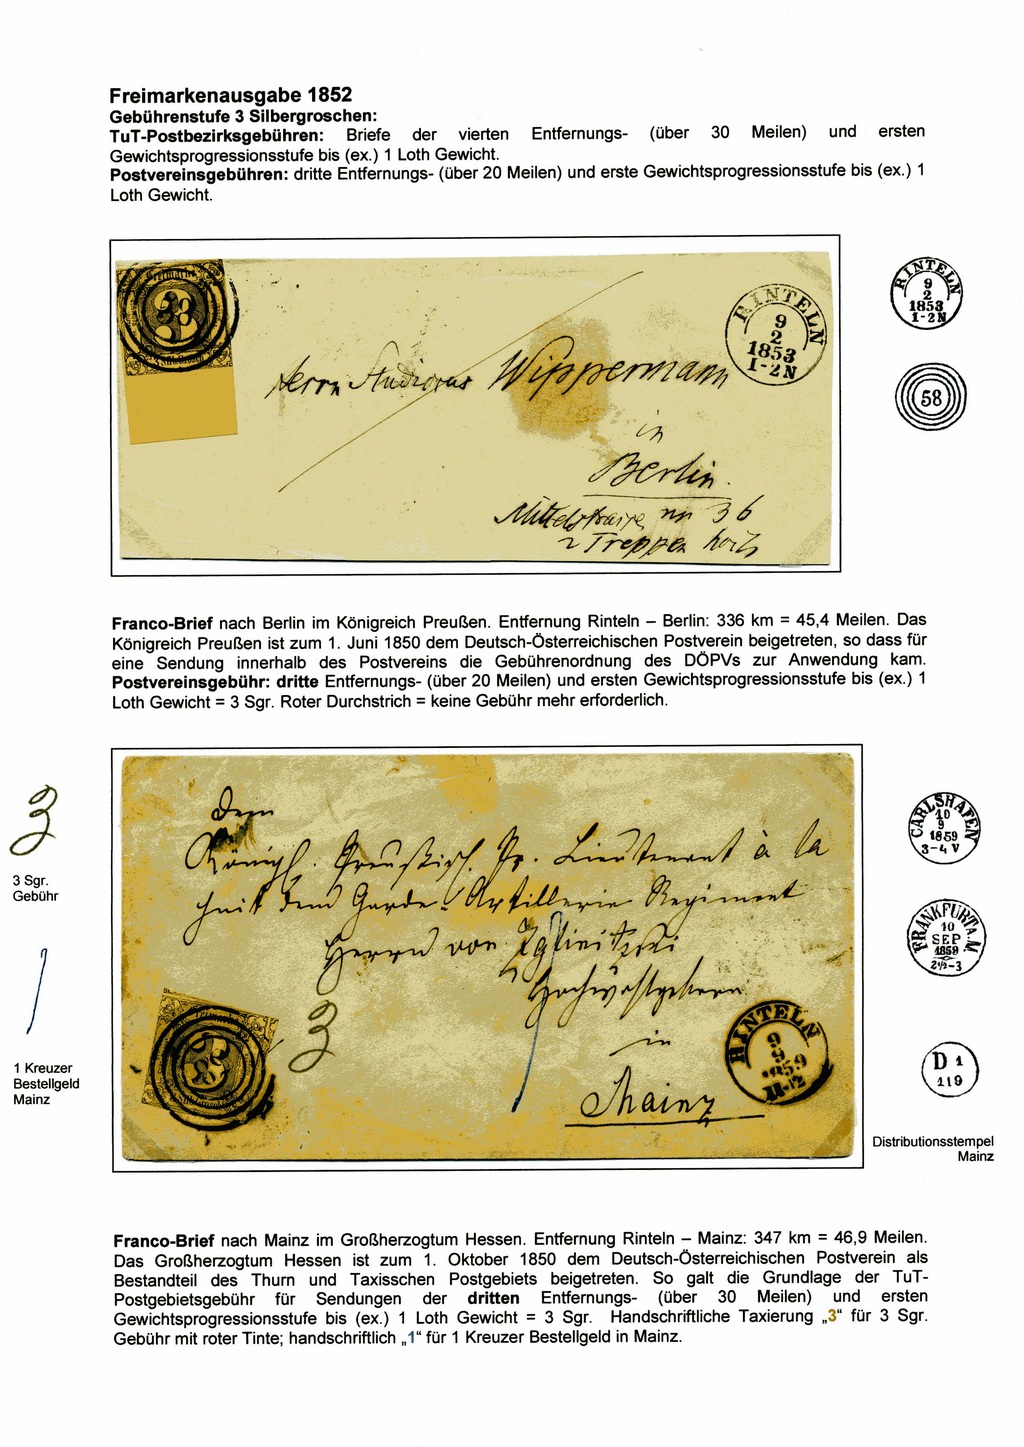 Freimarkenausgabe 1852
Gebührenstufe 3 Silbergroschen:
TuT-Postbezirksgebühren: Briefe der vierten Entfernungs- (über 30 Meilen) und ersten
Gewichtsprogressionsstufe bis (ex.) 1 Loth Gewicht.
Postvereinsgebühren: dritte Entfernungs- (über 20 Meilen) und erste Gewichtsprogressionsstufe bis (ex.) 1
Loth Gewicht.
Freimarke
RINTELN
9
2
1853
1-2N
Herrn Studiosus Wippermann
in
Berlin.
Mittelstraße no 36
2 Treppen hoch
RINTELN
9
2
1853
1-2N
58
Franco-Brief nach Berlin im Königreich Preußen. Entfernung Rinteln – Berlin: 336 km = 45,4 Meilen. Das
Königreich Preußen ist zum 1. Juni 1850 dem Deutsch-Österreichischen Postverein beigetreten, so dass für
eine Sendung innerhalb des Postvereins die Gebührenordnung des DÖPVs zur Anwendung kam.
Postvereinsgebühr: dritte Entfernungs- (über 20 Meilen) und ersten Gewichtsprogressionsstufe bis (ex.) 1
Loth Gewicht = 3 Sgr. Roter Durchstrich = keine Gebühr mehr erforderlich.
3
3 Sgr.
Gebühr
1
1 Kreuzer
Bestellgeld
Mainz
Dem
Königl. Preußisch. Pr. Lieutenant à la
suite dem Garde-Artillerie Regiment
Herrn von
Hochwohlgeboren
in
Mainz
3
1
RINTELN
9
9
1859
11-12
CARLSHAFEN
10
9
1859
3-4 V
FRANKFURT A.M
10
SEP
1859
2½-3
D 1
119
Distributionsstempel
Mainz
Franco-Brief nach Mainz im Großherzogtum Hessen. Entfernung Rinteln – Mainz: 347 km = 46,9 Meilen.
Das Großherzogtum Hessen ist zum 1. Oktober 1850 dem Deutsch-Österreichischen Postverein als
Bestandteil des Thurn und Taxisschen Postgebiets beigetreten. So galt die Grundlage der TuT-
Postgebietsgebühr für Sendungen der dritten Entfernungs- (über 30 Meilen) und ersten
Gewichtsprogressionsstufe bis (ex.) 1 Loth Gewicht = 3 Sgr. Handschriftliche Taxierung „3“ für 3 Sgr.
Gebühr mit roter Tinte; handschriftlich „1“ für 1 Kreuzer Bestellgeld in Mainz.